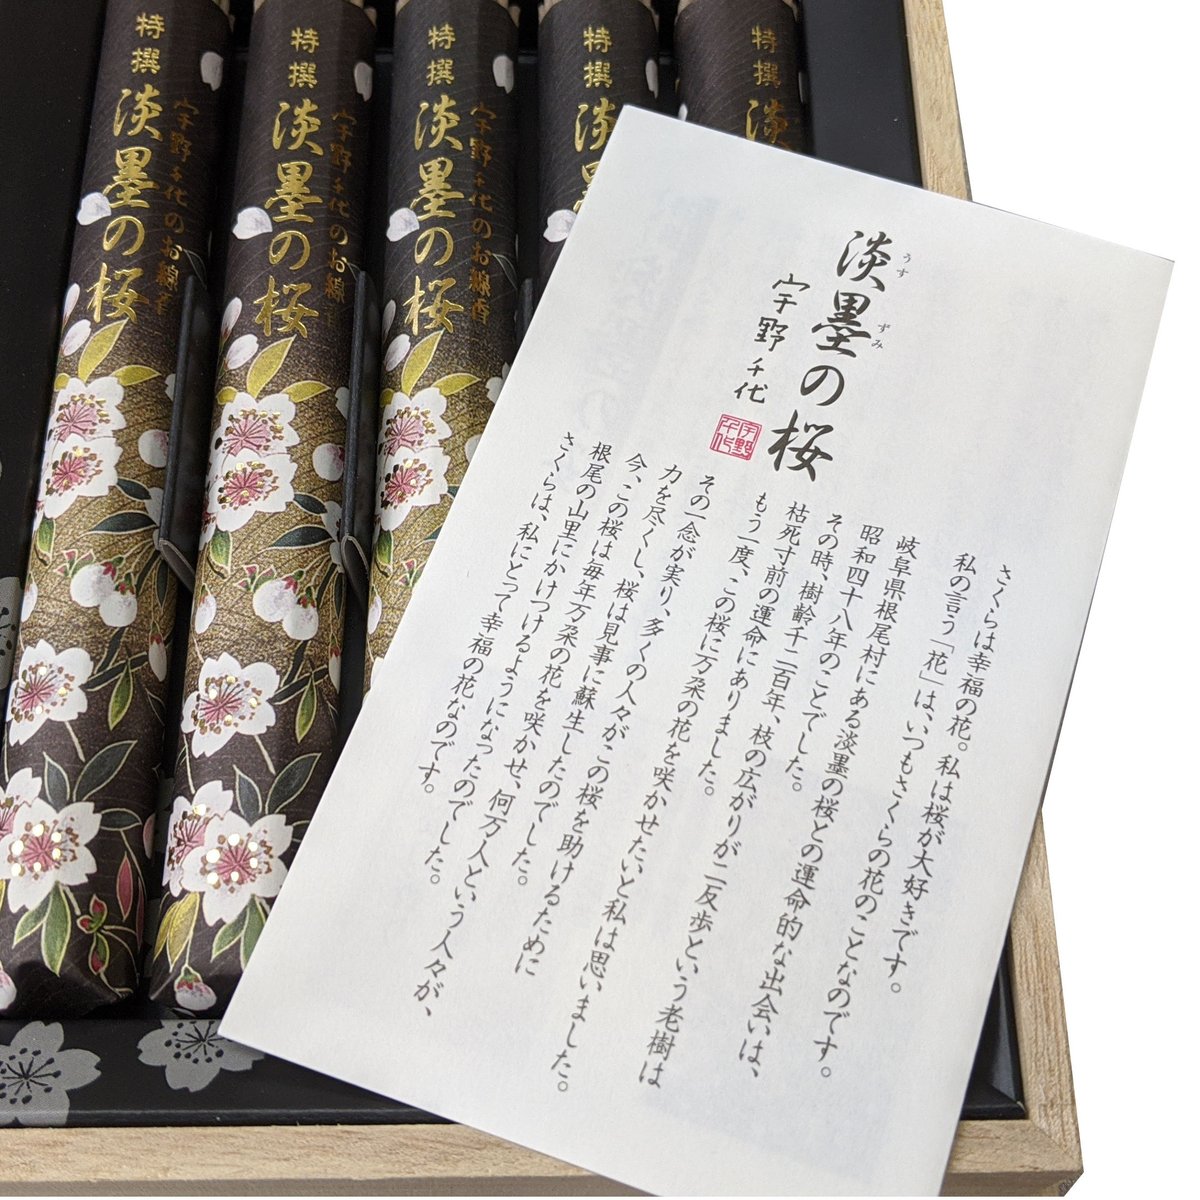 特撰
淡墨の桜
宇野千代のお線香
特撰
淡墨の桜
宇野千代のお線
特撰
淡墨の桜
宇野千代のお線香
特撰
淡
特撰
淡
淡墨の桜
うす
ずみ
宇野千代
宇野千代
さくらは幸福の花。私は桜が大好きです。
私の言う「花」は、いつもさくらの花のことなのです。
岐阜県根尾村にある淡墨の桜との運命的な出会いは、
昭和四十八年のことでした。
その時、樹齢千二百年、枝の広がりが二反歩という老樹は
枯死寸前の運命にありました。
もう一度、この桜に万朶の花を咲かせたいと私は思いました。
その一念が実り、多くの人々がこの桜を助けるために
力を尽くし、桜は見事に蘇生したのでした。
今、この桜は毎年万朶の花を咲かせ、何万人という人々が、
根尾の山里にかけつけるようになったのでした。
さくらは、私にとって幸福の花なのです。